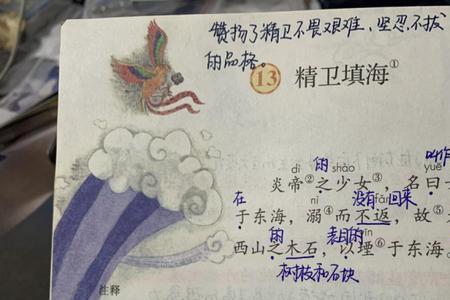 赞扬了精卫不畏艰难、坚忍不拔
的品格。
13 精卫填海①
dì 的 shào 叫作 yuē
炎帝②之少女③,名曰
在 nì 没有 fǎn 回来
于东海,溺④而不返,故⑤
的 表目的 yīn
西山之木石,以堙⑥于东海。
树枝和石块
注释